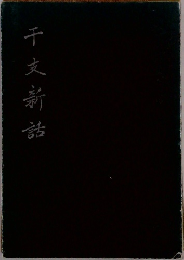 干支新話